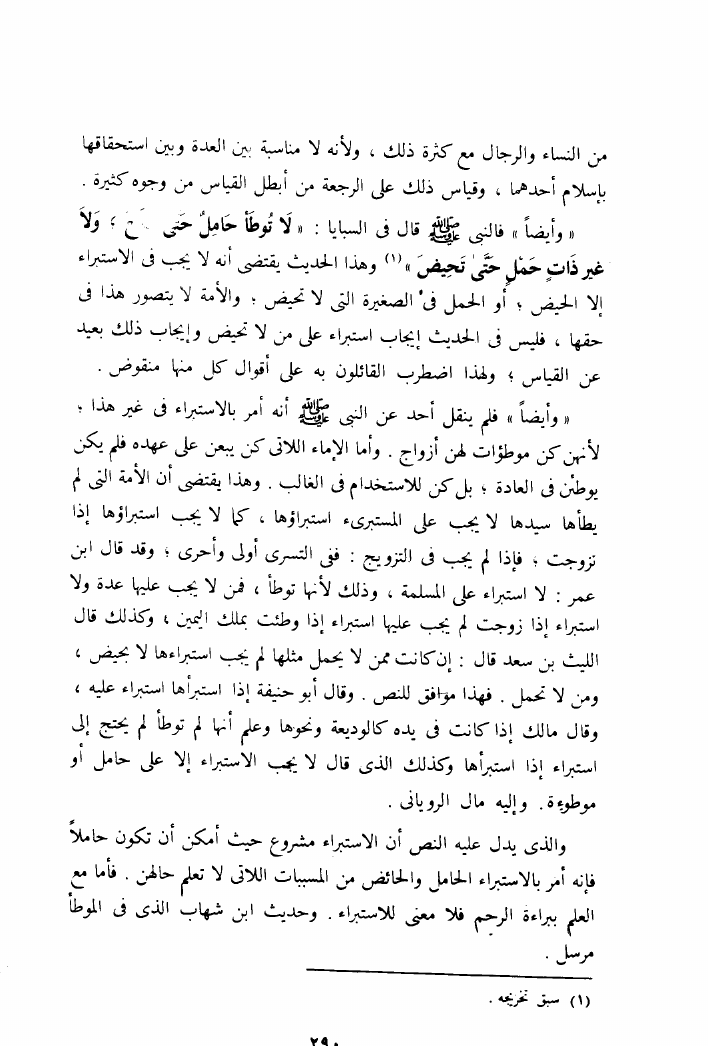 من النساء والرجال مع كثرة ذلك ، ولأنه لا مناسبة بين العدة وبين استحقاقها
بإسلام أحدهما ، وقياس ذلك على الرجعة من أبطل القياس من وجوه كثيرة .
« وأيضاً » فالنبى ﷺ قال فى السبايا : « لَا تُوطَأُ حَامِلٌ حَتى ؛ وَلَا
غير ذَاتِ حَمْلٍ حَتَّى تَحِيضَ »(١) وهذا الحديث يقتضى أنه لا يجب فى الاستبراء
إلا الحيض ؛ أو الحمل فى الصغيرة التى لا تحيض ؛ والأمة لا يتصور هذا فى
حقها ، فليس فى الحديث إيجاب استبراء على من لا تحيض وإيجاب ذلك بعيد
عن القياس ؛ ولهذا اضطرب القائلون به على أقوال كل منها منقوض .
« وأيضاً » فلم ينقل أحد عن النبى ﷺ أنه أمر بالاستبراء فى غير هذا ؛
لأنهن كن موطؤات لهن أزواج . وأما الإماء اللاتى كن يبعن على عهده فلم يكن
يوطئن فى العادة ؛ بل كن للاستخدام فى الغالب . وهذا يقتضى أن الأمة التى لم
يطأها سيدها لا يجب على المستبرىء استبراؤها ، كما لا يجب استبراؤها إذا
تزوجت ؛ فإذا لم يجب فى التزويج : ففى التسرى أولى وأحرى ؛ وقد قال ابن
عمر : لا استبراء على المسلمة ، وذلك لأنها توطأ ، فمن لا يجب عليها عدة ولا
استبراء إذا زوجت لم يجب عليها استبراء إذا وطئت بملك اليمين ، وكذلك قال
الليث بن سعد قال : إن كانت ممن لا يحمل مثلها لم يجب استبراءها لا بحيض ،
ومن لا تحمل . فهذا موافق للنص . وقال أبو حنيفة إذا استبرأها استبراء عليه ،
وقال مالك إذا كانت فى يده كالوديعة ونحوها وعلم أنها لم توطأ لم يحتج إلى
استبراء إذا استبرأها وكذلك الذى قال لا يجب الاستبراء إلا على حامل أو
موطوءة . وإليه مال الرويانى .
والذى يدل عليه النص أن الاستبراء مشروع حيث أمكن أن تكون حاملاً
فإنه أمر بالاستبراء الحامل والحائض من المسببات اللاتى لا تعلم حالهن . فأما مع
العلم ببراءة الرحم فلا معنى للاستبراء . وحديث ابن شهاب الذى فى الموطأ
مرسل .
(١) سبق تخريجه .
٢٩٠